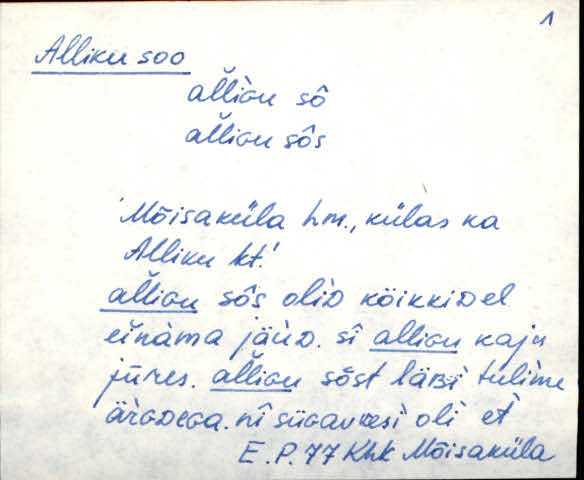 1
Alliku soo
al̆liɢu sô
al̆liɢu sôs
'Mõisaküla hm., külas ka
Alliku kt.'
al̆liɢu sôs oliD köikkiDel
eìnàma jäùD. sî alliɢu kaju
jũres. al̆liɢu sôst läBsi tulime
äŕGDeGa. nî süGavvesi oli et
E.P. 77 Khk Mõisaküla